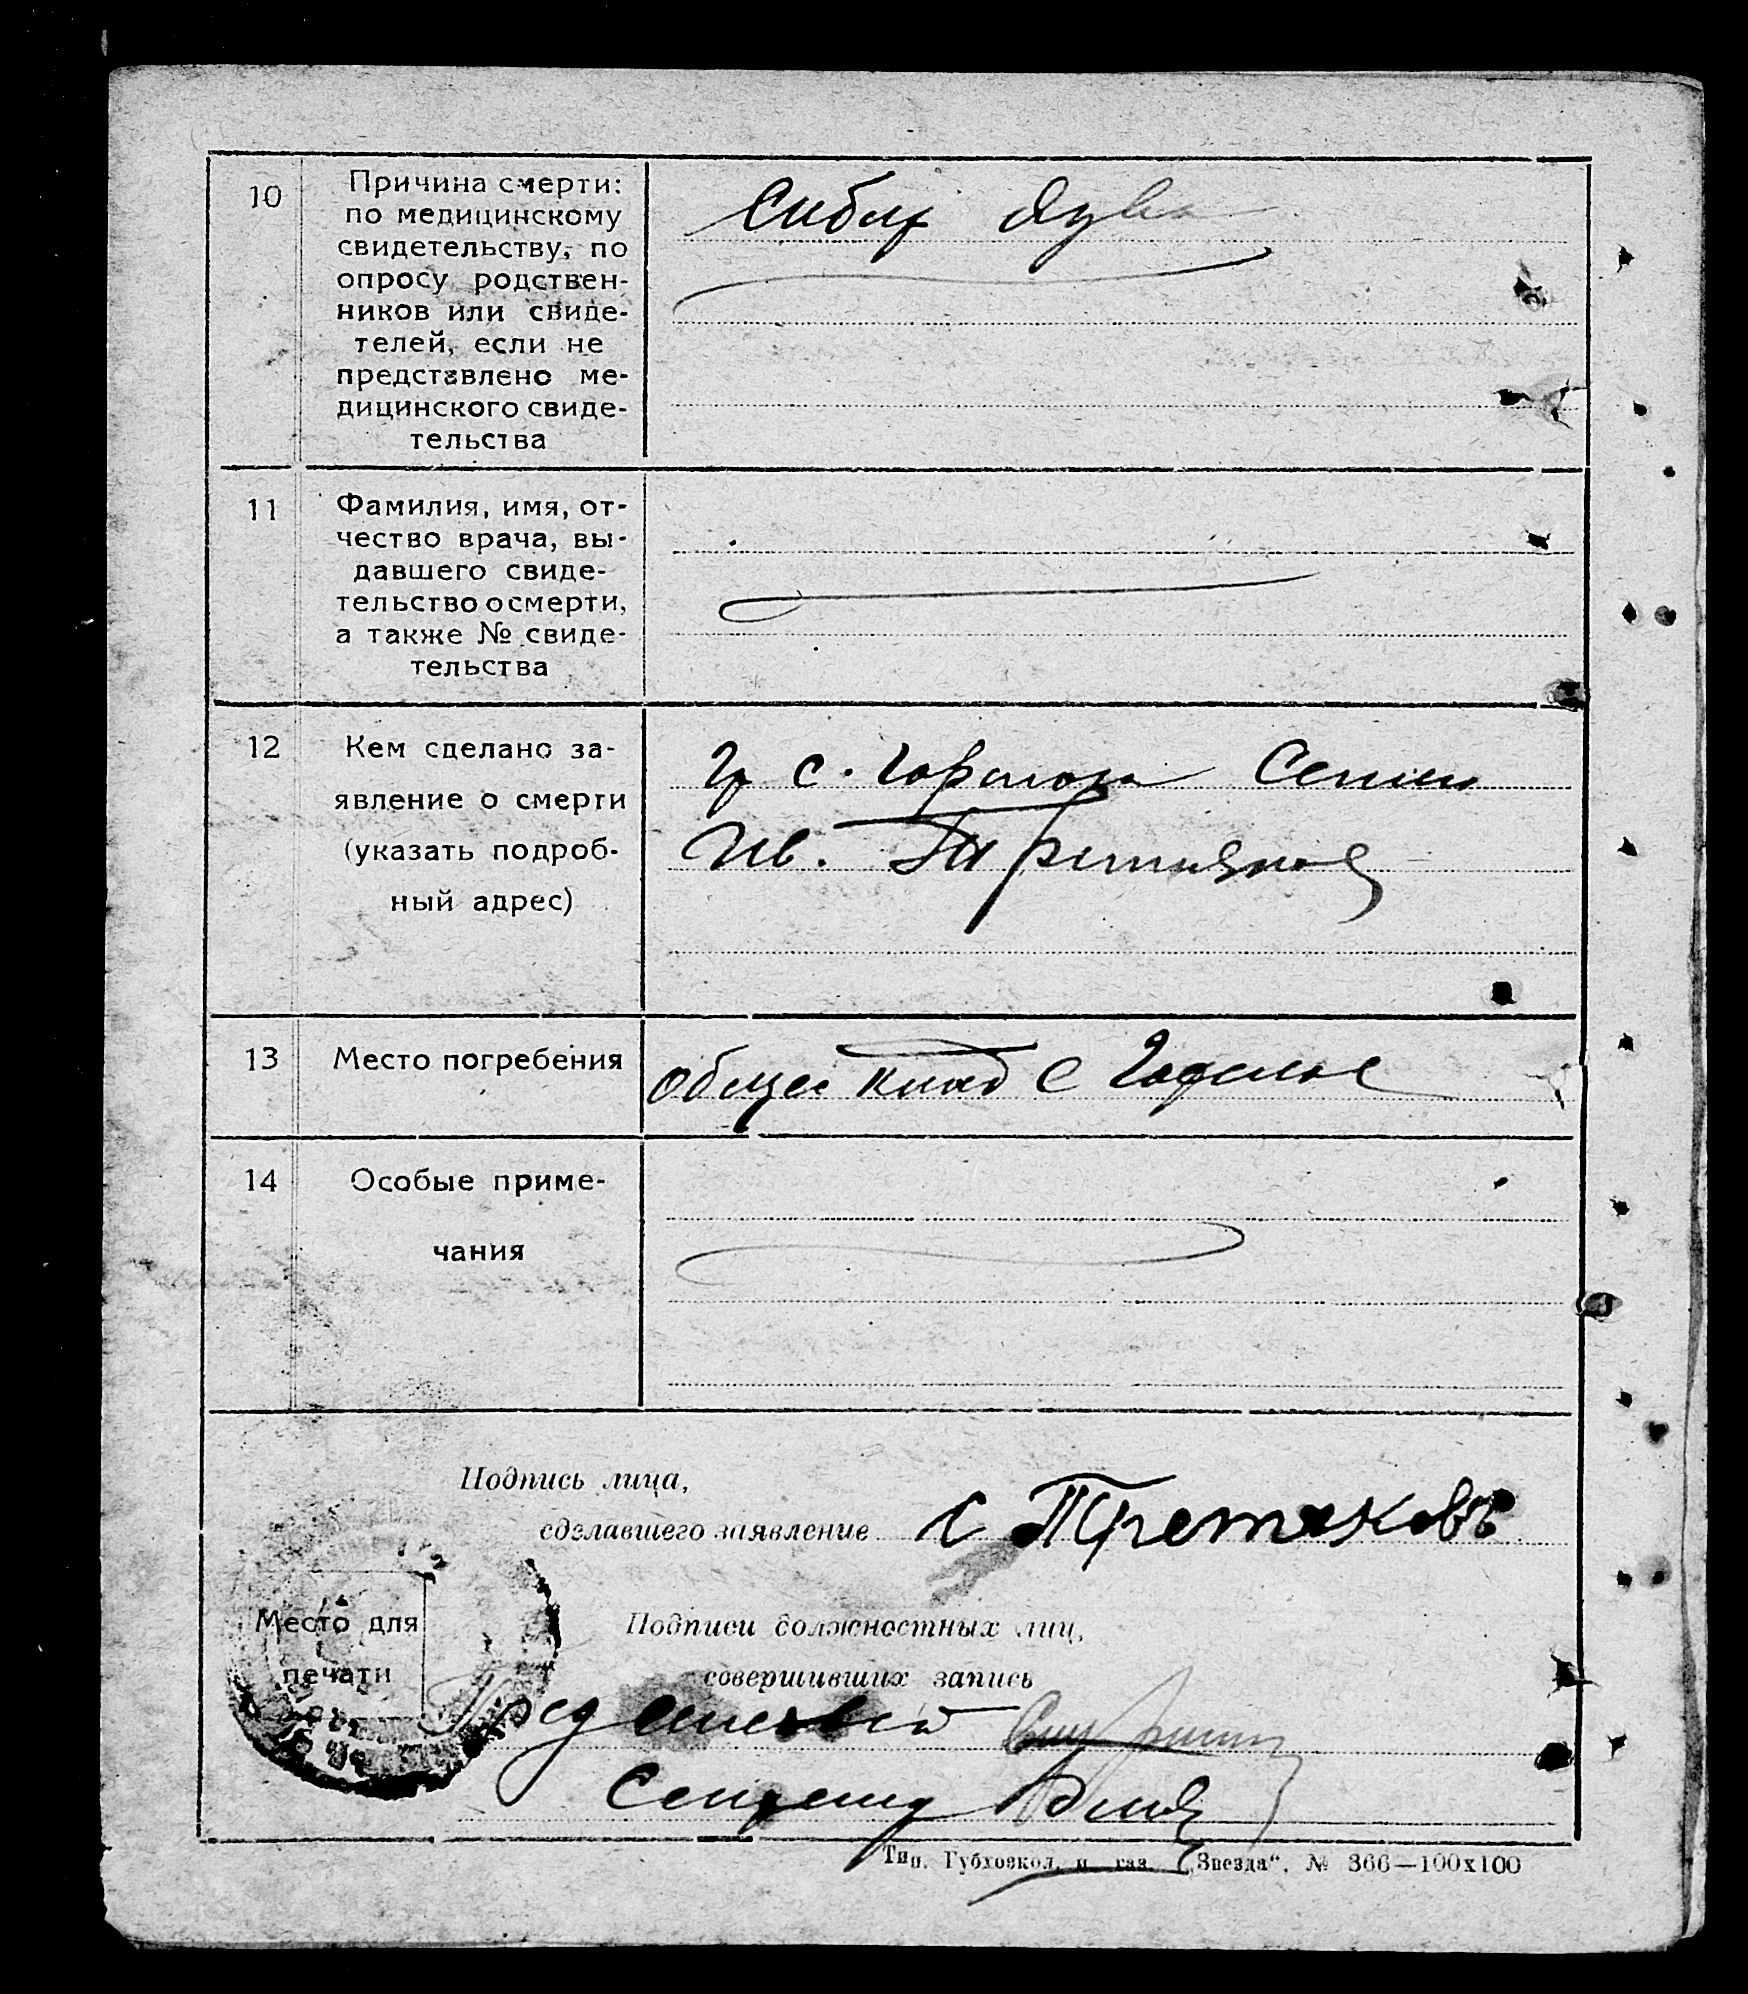 10
Причина смерти:
по медицинскому
свидетельству, по
опросу родствен-
ников или свиде-
телей, если не
представлено ме-
дицинского свиде-
тельства
Сибир язва
11
Фамилия, имя, от-
чество врача, вы-
давшего свиде-
тельство о смерти,
а также № свиде-
тельства
12
Кем сделано за-
явление о смерти
(указать подроб-
ный адрес)
гр с. Семен
Ив. Третьяков
13
Место погребения
общее клад с
14
Особые приме-
чания
Подпись лица,
сделавшего заявление
С Третяковъ
Место для
печати
Подписи должностных лиц,
совершивших запись
Пред
Секретар
Тип. Губхозкол. и газ. „Звезда“. № 366—100х100